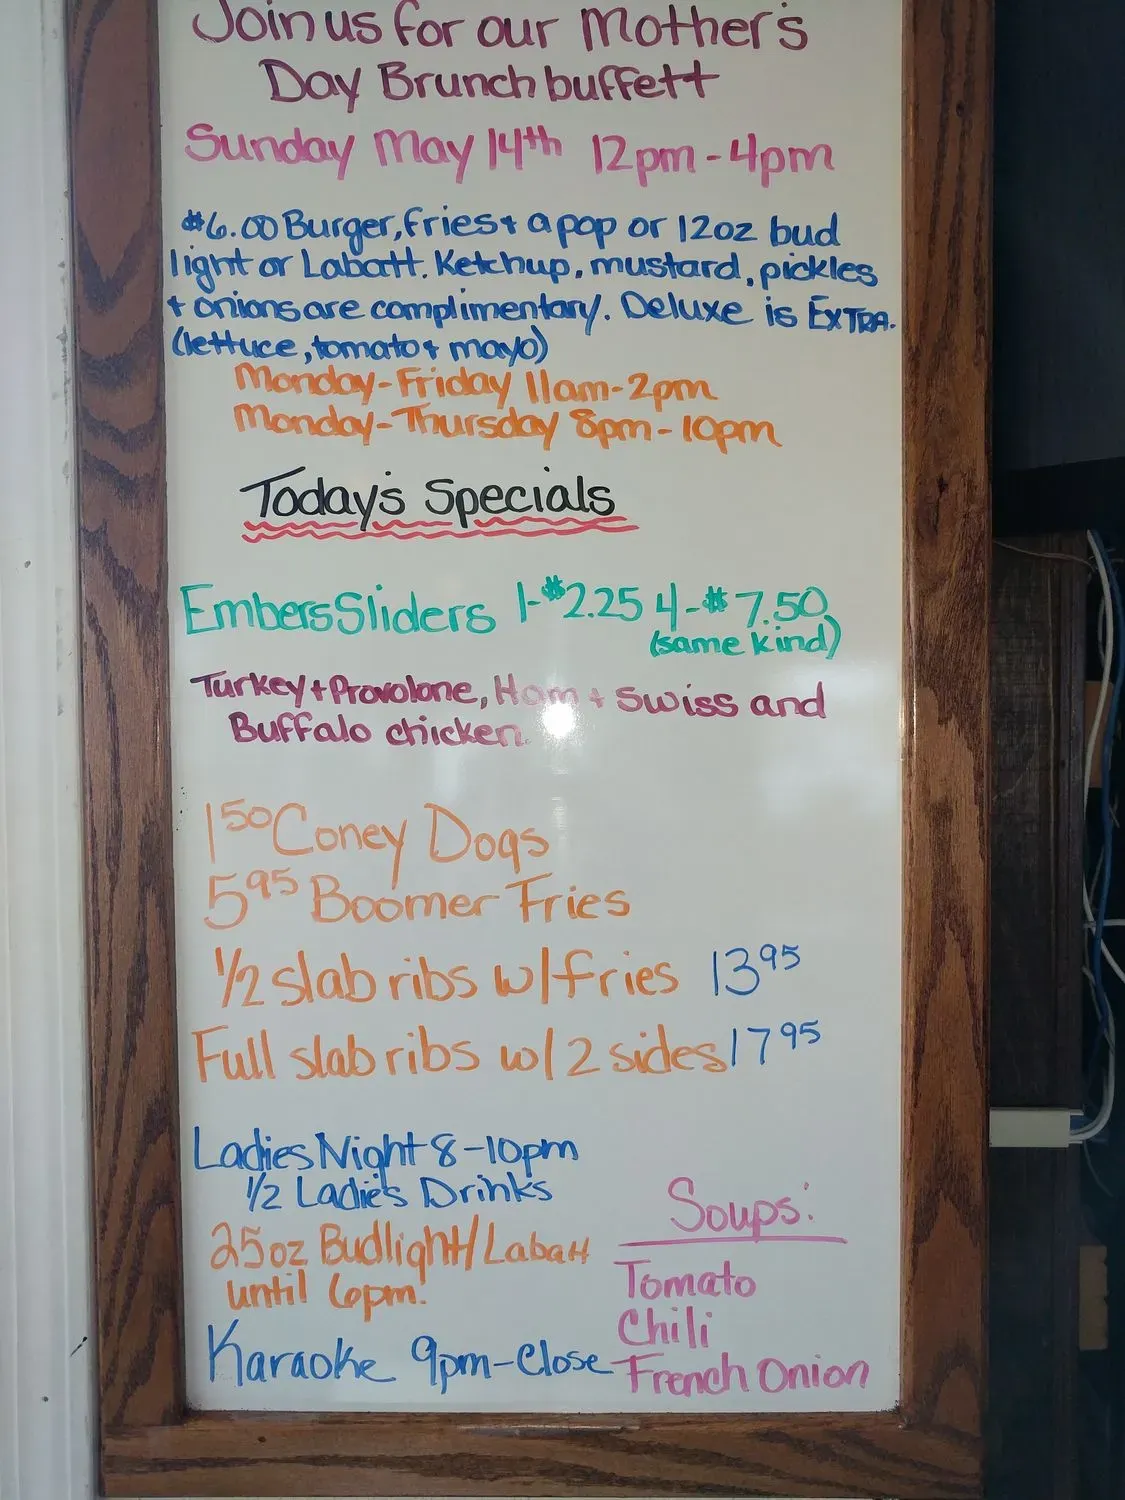 Join us for our Mother's
Day Brunch buffett
Sunday May 14th 12pm-4pm
$6.00 Burger, fries + a pop or 12oz bud
light or Labatt. Ketchup, mustard, pickles
+ onions are complimentary. Deluxe is EXTRA.
(lettuce, tomato + mayo)
Monday-Friday 11am-2pm
Monday-Thursday 8pm-10pm
Today's Specials
Embers Sliders 1-$2.25 4-$7.50
(same kind)
Turkey + Provolone, Ham + Swiss and
Buffalo chicken.
1 50 Coney Dogs
5 95 Boomer Fries
1/2 slab ribs w/fries 13 95
Full slab ribs w/ 2 sides 17 95
Ladies Night 8-10pm
1/2 Ladies Drinks
25oz Budlight/Labatt
until 6pm.
Karaoke 9pm-Close
Soups:
Tomato
Chili
French Onion